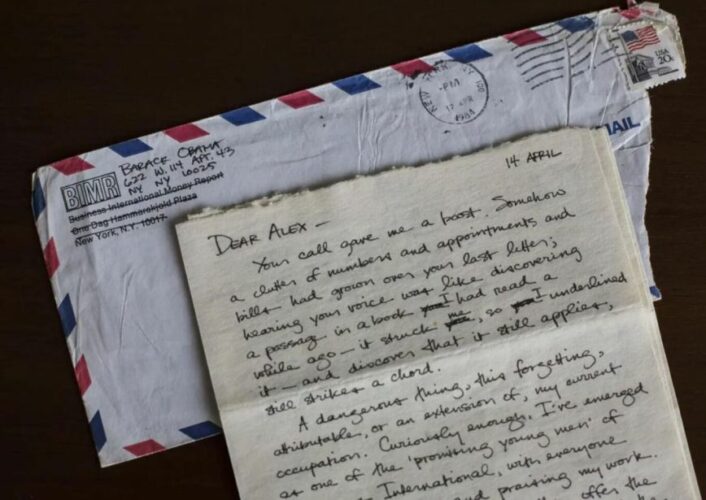 BARACK OBAMA
622 W. 114 APT. 43
NY NY 10025
BIMR
Business International Money Report
One Dag Hammarskjold Plaza
New York, N.Y. 10017
NEW YORK, NY 100
PM
17 APR
1984
USA
20c
MAIL
14 APRIL
DEAR ALEX —
Your call gave me a boost. Somehow
a clutter of numbers and appointments and
bills had grown over your last letter;
hearing your voice was like discovering
a passage in a book I had read a
while ago — it struck me, so I underlined
it — and discover that it still applies,
still strikes a chord.
A dangerous thing, this forgetting,
attributable, or an extension of, my current
occupation. Curiously enough, I've emerged
as one of the 'promising young men' of
International, with everyone
and praising my work.
offer the